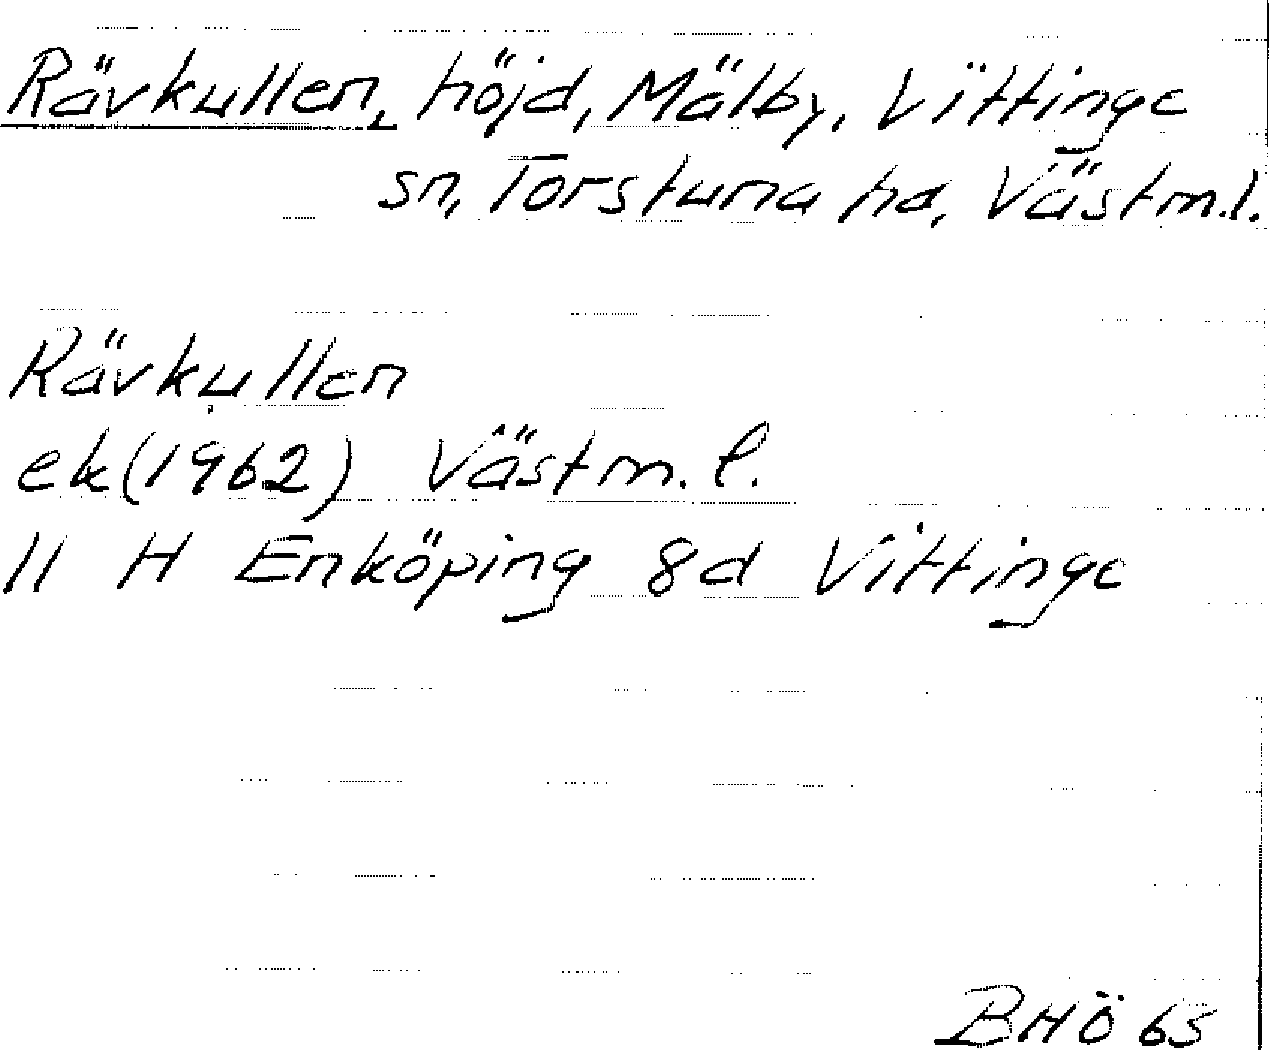 Rävkullen, höjd, Mälby, Vittinge
sn, Torstuna hd, Västm.l.
Rävkullen
ek(1962) Västm.l.
11 H Enköping 8d Vittinge
BHÖ 65